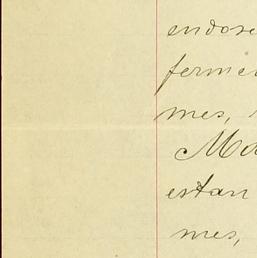 endose
ferme
mes,
Ma
estan
mes,